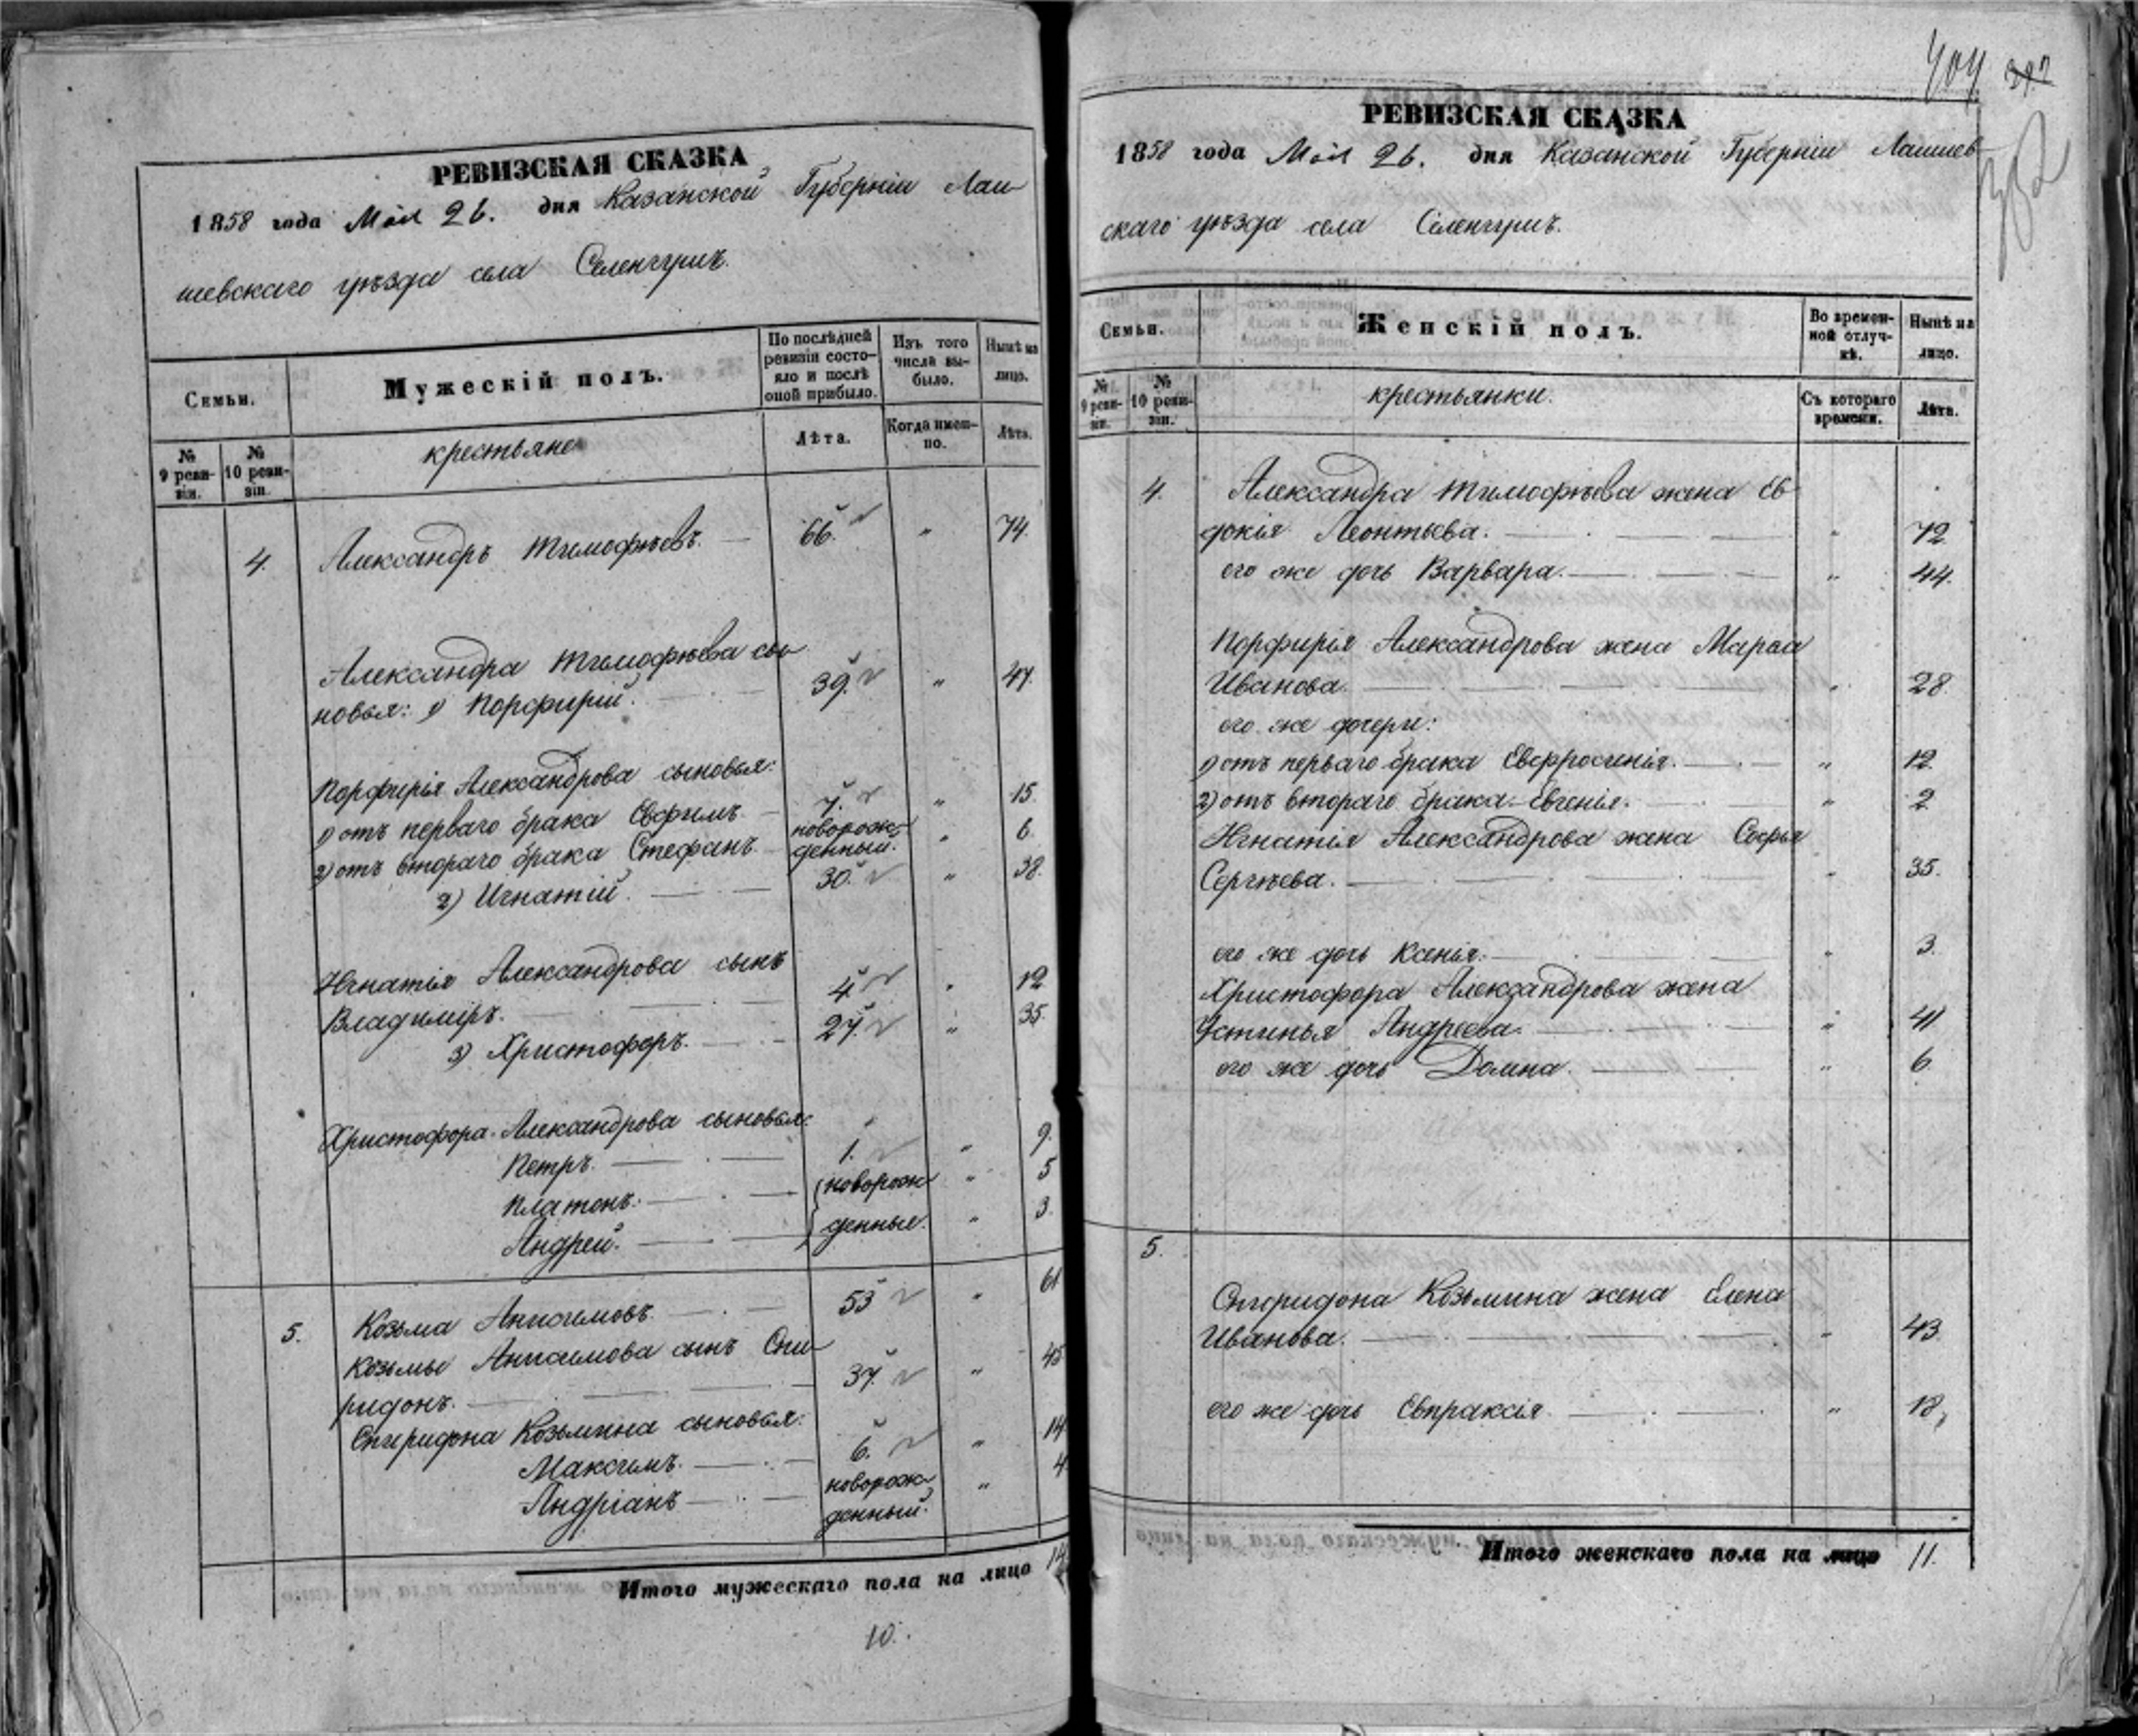 РЕВИЗСКАЯ СКАЗКА
1858 года Мая 26. дня Казанской Губерніи Лаи
шевскаго уѣзда села Селенгушъ.
Семьи.
Мужескій полъ.
По послѣдней ревизіи состояло и послѣ оной прибыло.
Изъ того числа выбыло.
Нынѣ на лицо.
№ 9 ревизіи.
№ 10 ревизіи.
крестьяне
Лѣта.
Когда именно.
Лѣта.
4. Александръ Тимофѣевъ. 66. " 74.
Александра Тимофѣева сы
новья: 1) Порфирій. 39. " 47.
Порфирія Александрова сыновья:
1) отъ перваго брака Евфимъ. 7. " 15.
2) отъ втораго брака Стефанъ. новорожденный. " 6.
2) Игнатій. 30. " 38.
Игнатія Александрова сынъ
Владиміръ. 4. " 12
3) Христофоръ. 27. " 35.
Христофора Александрова сыновья:
Петръ. 1. " 9.
Платонъ. новорож " 5
Андрей. денные. " 3.
5. Козьма Анисимовъ. 53 " 61
Козьмы Анисимова сынъ Спи
ридонъ. 37. " 45
Спиридона Козьмина сыновья:
Максимъ. 6. " 14
Андріанъ новорожденный. " 4
Итого мужескаго пола на лицо 14
10.
404 392
382
РЕВИЗСКАЯ СКАЗКА
1858 года Мая 26. дня Казанской Губерніи Лаишев
скаго уѣзда села Селенгушъ.
Семьи.
Женскій полъ.
Во временной отлучкѣ.
Нынѣ на лицо.
№ 9 ревизіи.
№ 10 ревизіи.
крестьянки.
Съ котораго времени.
Лѣта.
4. Александра Тимофѣева жена Ев
докія Леонтьева. " 72
его же дочь Варвара. " 44.
Порфирія Александрова жена Марѳа
Иванова. " 28.
его же дочери:
1) отъ перваго брака Евфросинія. " 12.
2) отъ втораго брака Евгенія. " 2
Игнатія Александрова жена Софья
Сергѣева. " 35.
его же дочь Ксенья. " 3.
Христофора Александрова жена
Устинья Андреева. " 41
его же дочь Домна. " 6
5.
Спиридона Козьмина жена Елена
Иванова. " 43.
его же дочь Евпраксія. " 18,
Итого женскаго пола на лицо 11.